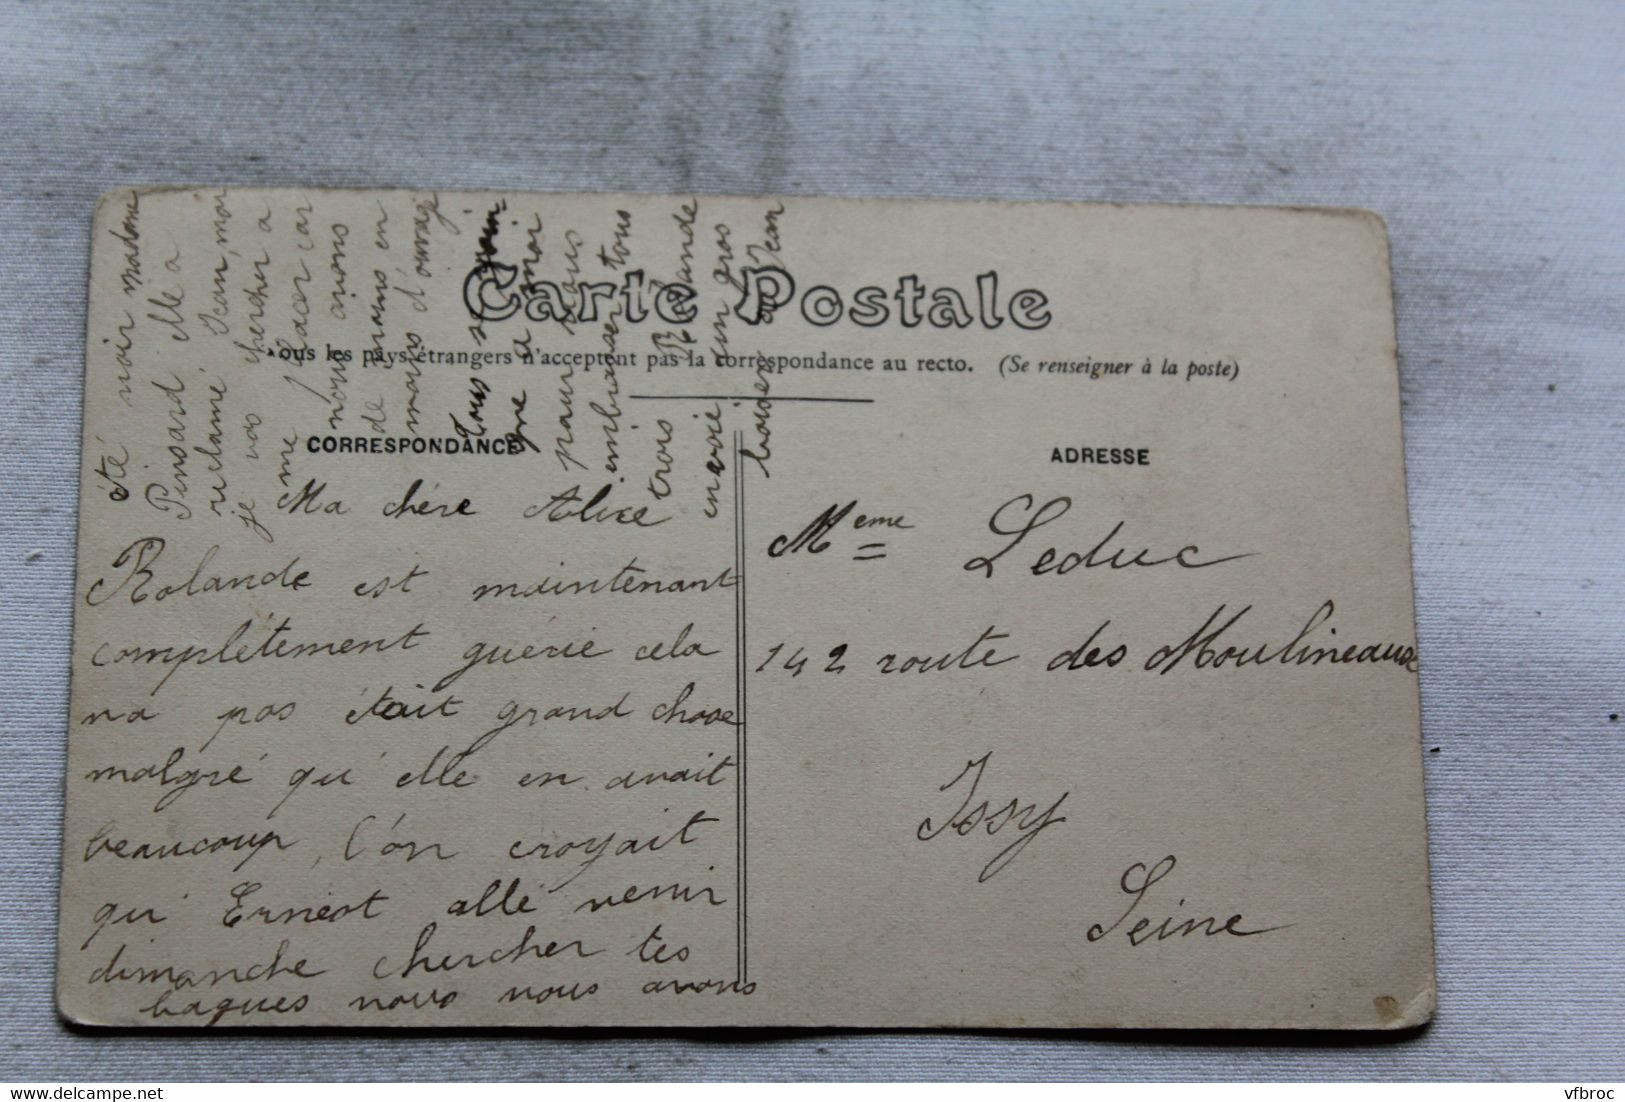 Carte Postale
Tous les pays étrangers n'acceptent pas la correspondance au recto. (Se renseigner à la poste)
CORRESPONDANCE
ADRESSE
Ma chére Alice
Rolande est maintenant
complétement guérie cela
na pas était grand chose
malgré qu'elle en avait
beaucoup, l'on croyait
qu'Ernest alle venir
dimanche chercher tes
bagues nous nous avons
été voir madame
Pinsard elle a
reclamé Jean, moi
je vos chercher a
me placer car
nous avions
de moins en
moins d'ouvrage
Tous se join-
gne a moi
pour vous
embrasser tous
trois Rolande
envoie un gros
baiser a Jean
Meme Leduc
142 route des Moulineaux
Issy
Seine
vfbroc